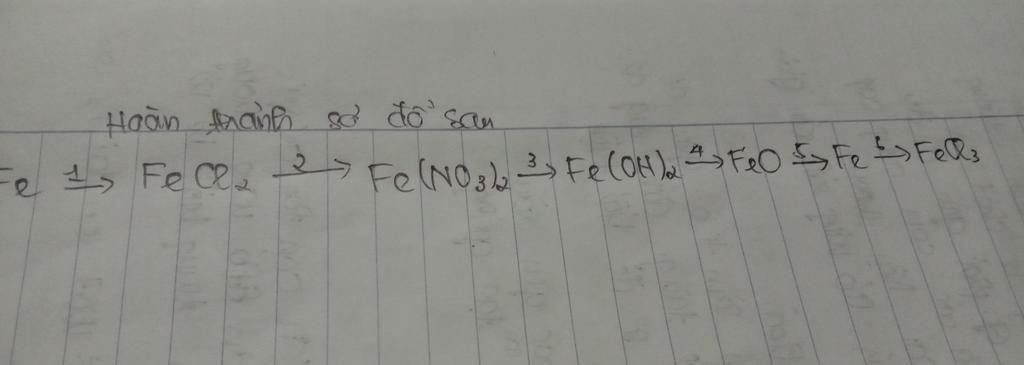 Hoàn thành sơ đồ sau
Fe 1→ FeCl2 2→ Fe(NO3)2 3→ Fe(OH)2 4→ FeO 5→ Fe 6→ FeCl3